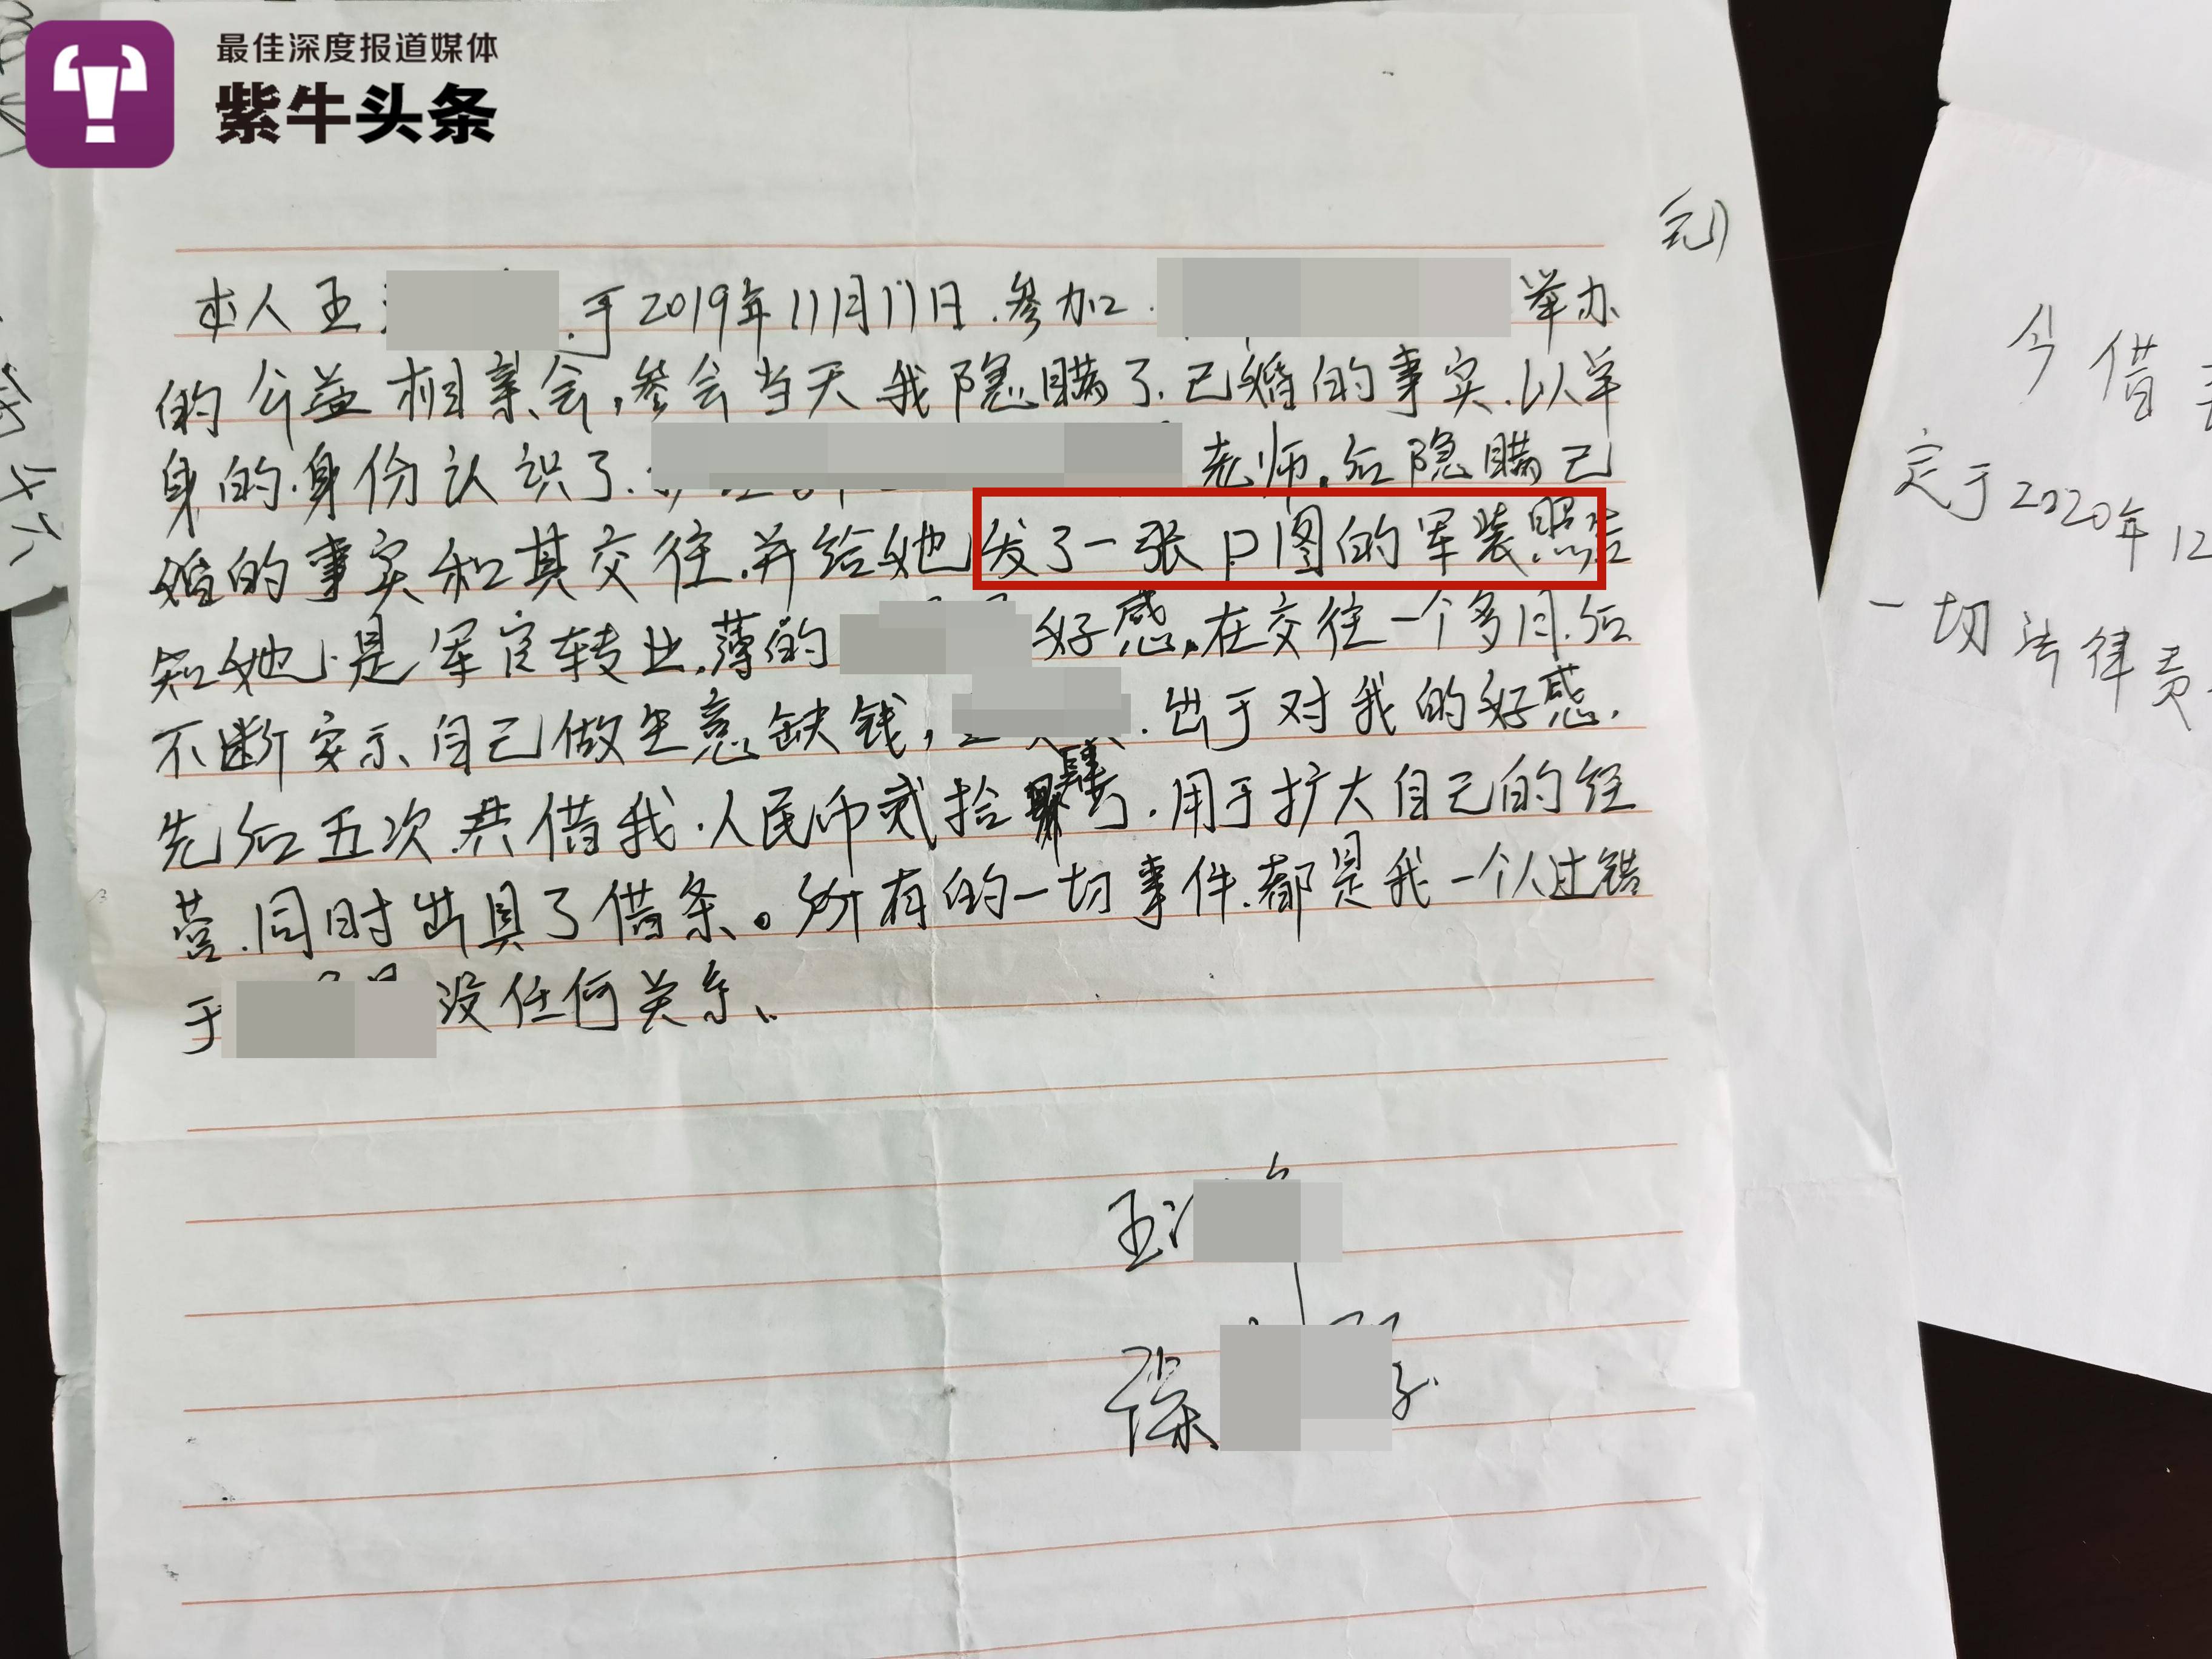 最佳深度报道媒体
紫牛头条
元)
本人王 于2019年11月11日.参加. 举办
的公益相亲会,参会当天我隐瞒了.已婚的事实.以单
身的.身份认识了. 老师.后隐瞒已
婚的事实和其交往.并给她发了一张P图的军装照告
知她是军官转业.薄的 好感,在交往一个多月.后
不断实示、自己做生意缺钱, .出于对我的好感.
先后五次.共借我.人民币贰拾肆万.用于扩大自己的经
营.同时出具了借条。所有的一切事件.都是我一个人过错
于 没任何关系、
王
张
今借
定于2020年12
一切法律责